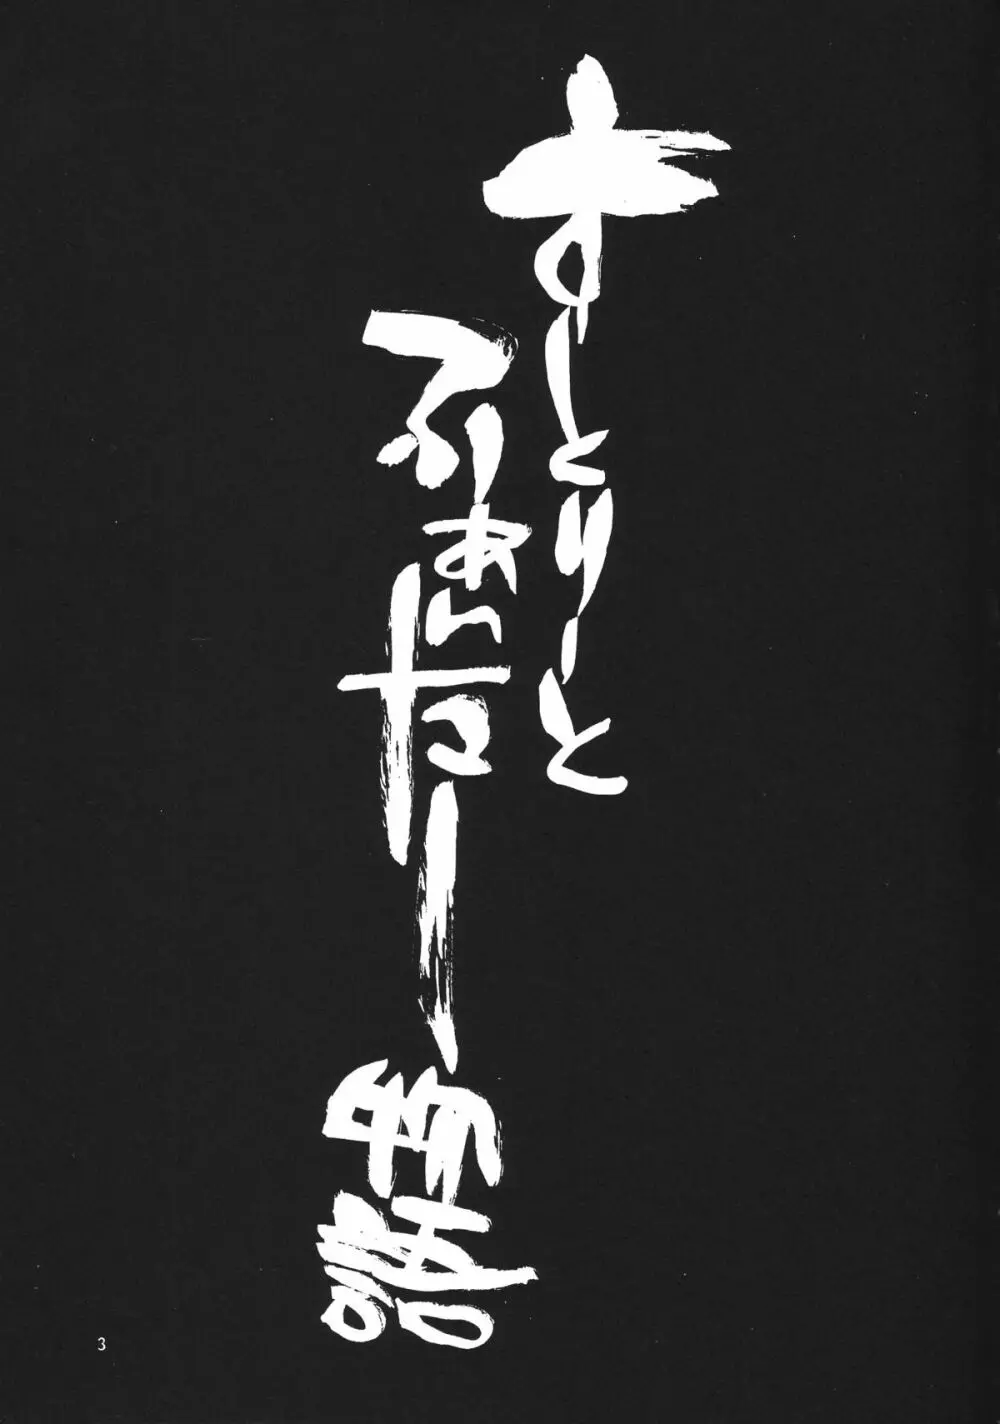 すとりーと
ふぁいたー
物語
3